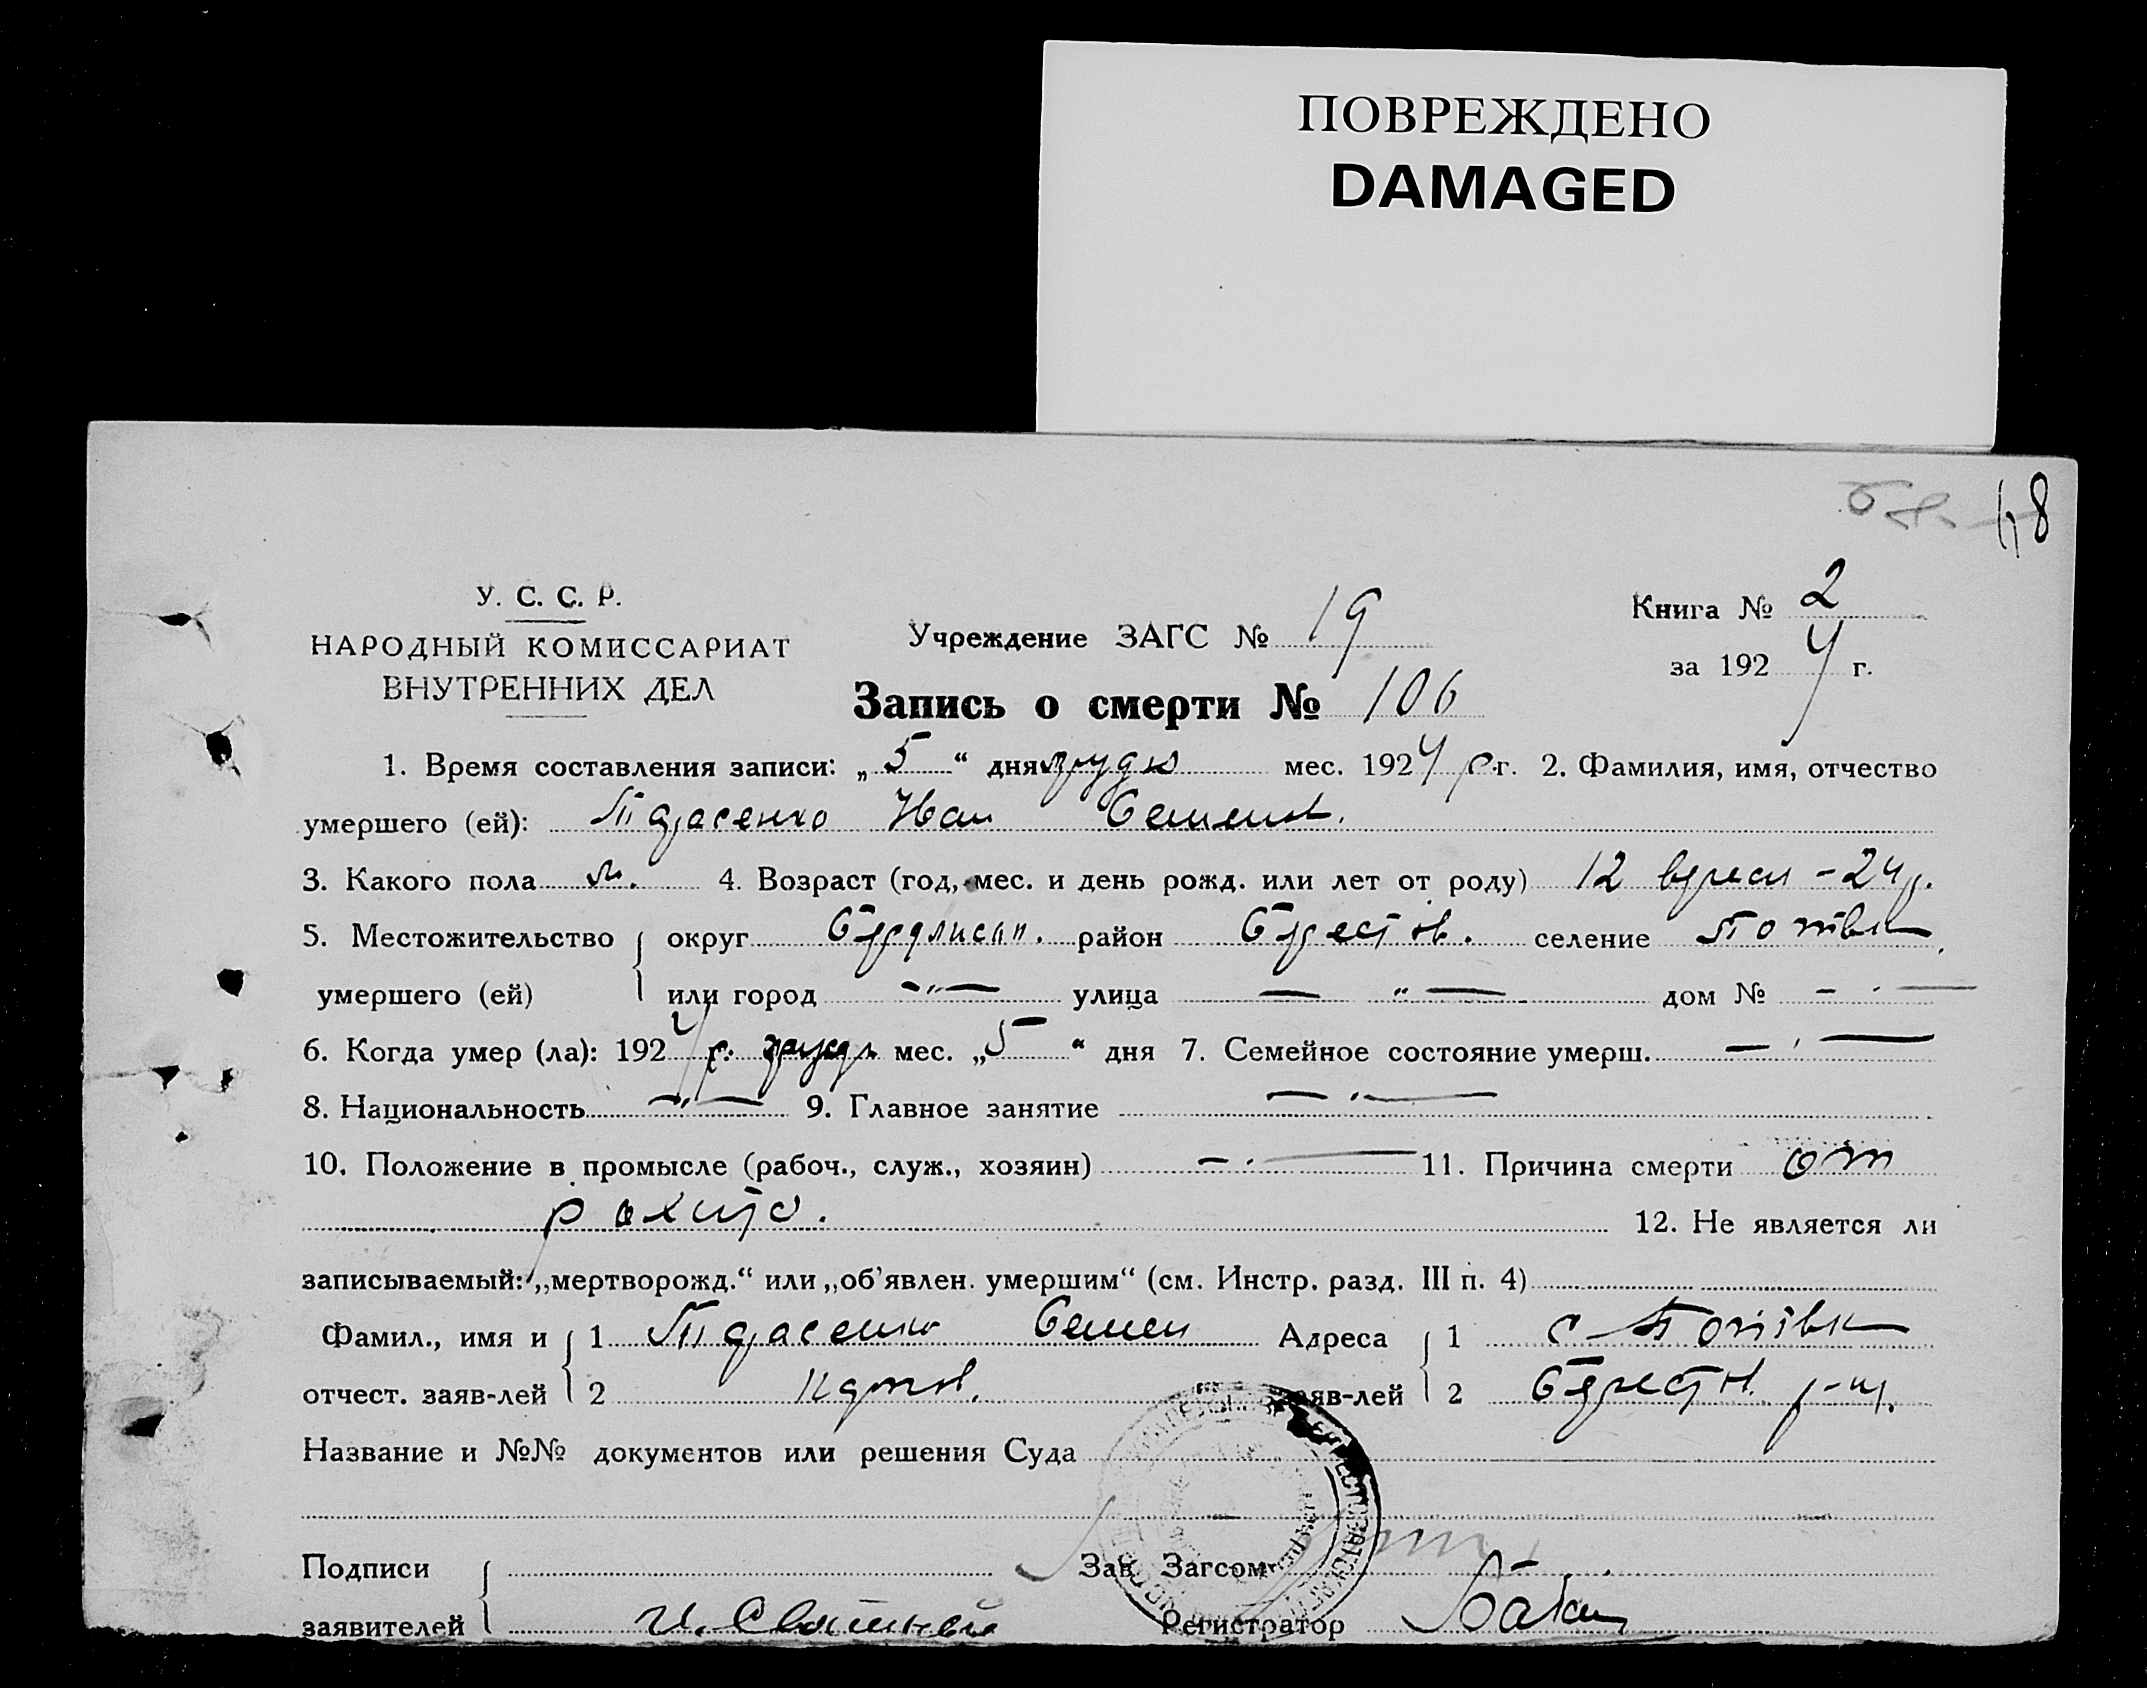 ПОВРЕЖДЕНО
DAMAGED
48
У. С. С. Р.
НАРОДНЫЙ КОМИССАРИАТ
ВНУТРЕННИХ ДЕЛ
Учреждение ЗАГС № 19
Книга № 2
за 1924 г.
Запись о смерти № 106
1. Время составления записи: „5“ дня грудня мес. 1924 р. г. 2. Фамилия, имя, отчество
умершего (ей): Тарасенко Иван Семенов.
3. Какого пола м. 4. Возраст (год, мес. и день рожд. или лет от роду) 12 вересн – 24 р.
5. Местожительство округ район селение
умершего (ей) или город –„– улица – „ – дом № – „ –
6. Когда умер (ла): 1924 р. грудн мес. „5“ дня 7. Семейное состояние умерш. – „ –
8. Национальность –„– 9. Главное занятие – „ –
10. Положение в промысле (рабоч., служ., хозяин) – „ – 11. Причина смерти от
12. Не является ли
записываемый: „мертворожд.“ или „об’явлен. умершим“ (см. Инстр. разд. III п. 4)
Фамил., имя и 1 Тарасенко Семен Адреса 1 с.
отчест. заяв-лей 2 заяв-лей 2 р-н.
Название и №№ документов или решения Суда
Подписи Зав. Загсом
заявителей Регистратор